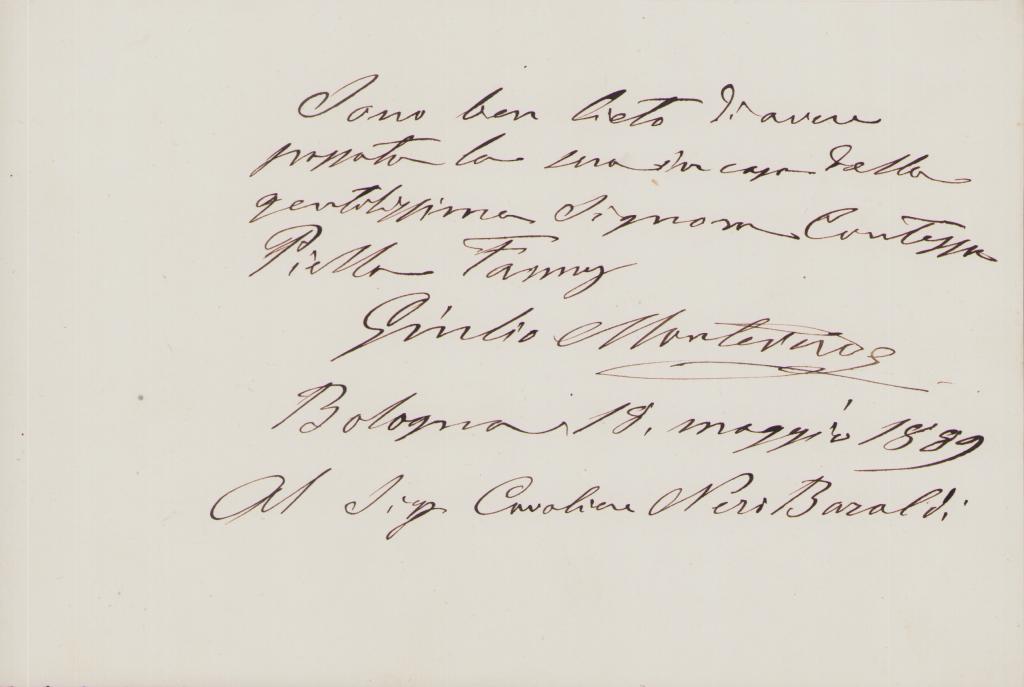 Sono ben lieto di avere
passata la sera in casa della
gentilissima Signora Contessa
Piella Fanny
Giulio Monteverde
Bologna 18. maggio 1889
Al Sigr Cavaliere Neri Baraldi